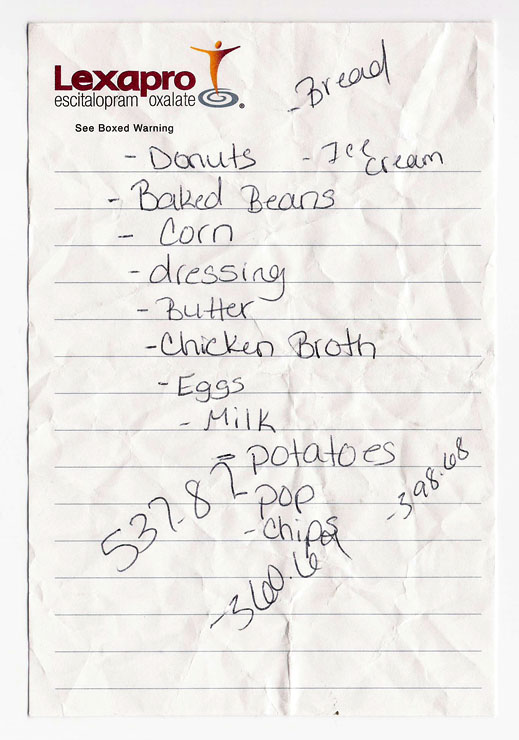 Lexapro
escitalopram oxalate
See Boxed Warning
- Bread
- Donuts
- Ice cream
- Baked Beans
- Corn
- dressing
- Butter
- Chicken Broth
- Eggs
- Milk
- potatoes
- pop
- Chips
537.87
-398.68